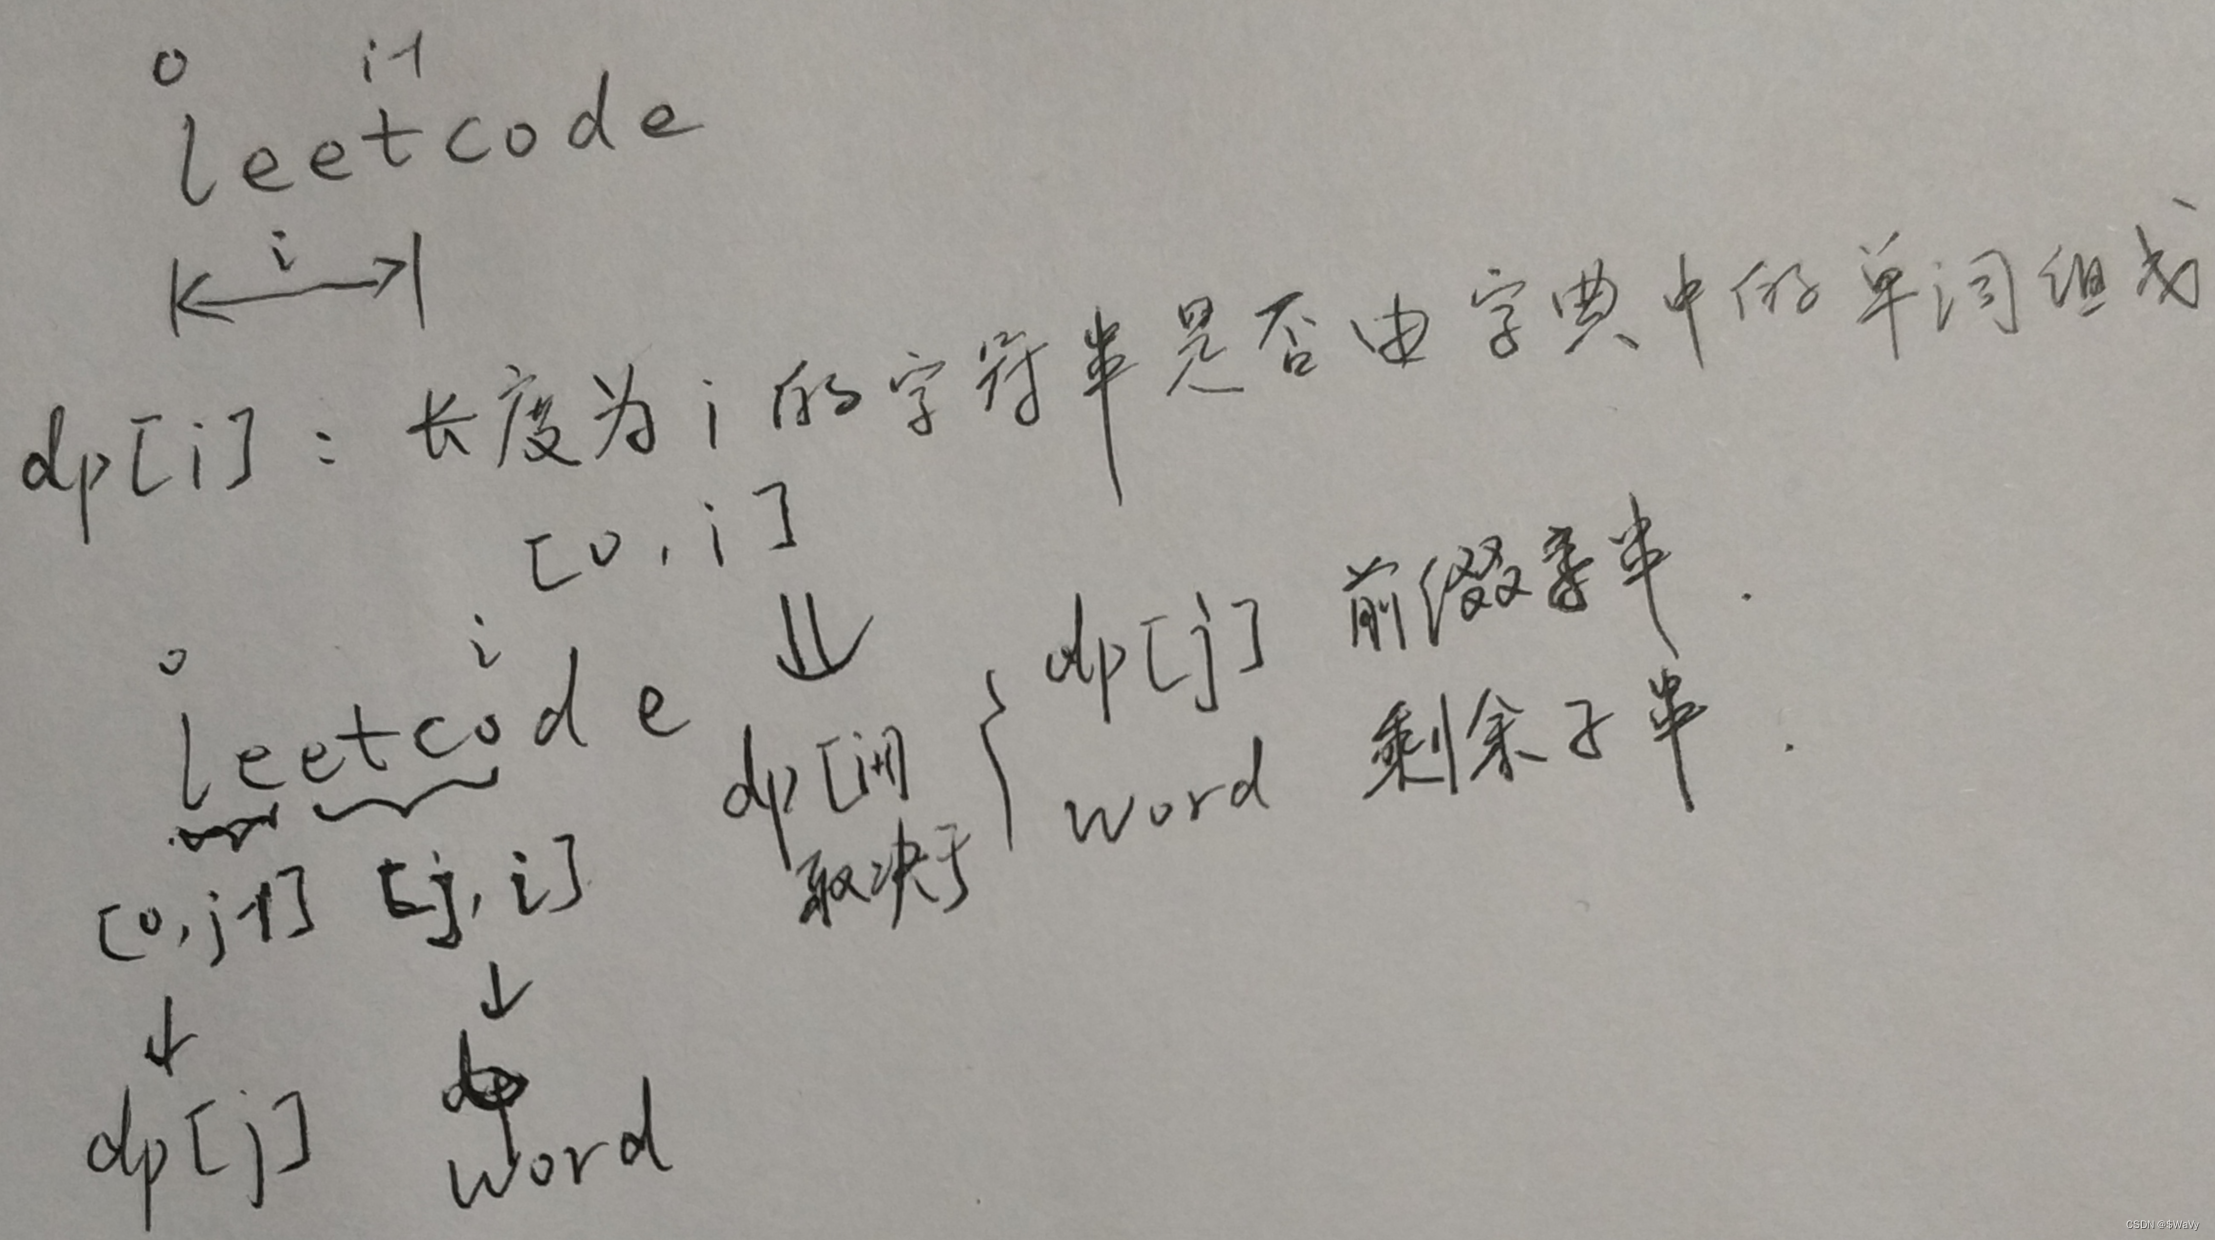 0 i-1
leetcode
i
dp[i]：长度为i的字符串是否由字典中的单词组成
[0,i]
0 i
leetcode
dp[i+1]
取决于
dp[j] 前缀字串.
word 剩余子串.
[0,j-1] [j,i]
dp[j]
word
CSDN @$WaVy